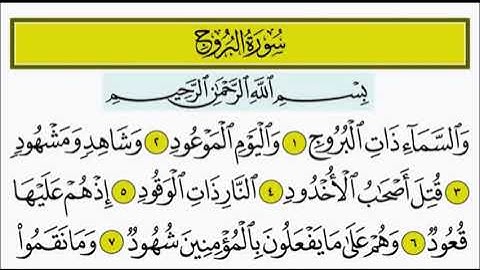 سُورَةُ الْبُرُوجِ
بِسْمِ اللَّهِ الرَّحْمَٰنِ الرَّحِيمِ
وَالسَّمَآءِ ذَاتِ الْبُرُوجِ ١ وَالْيَوْمِ الْمَوْعُودِ ٢ وَشَاهِدٍ وَمَشْهُودٍ
٣ قُتِلَ أَصْحَابُ الْأُخْدُودِ ٤ النَّارِ ذَاتِ الْوَقُودِ ٥ إِذْ هُمْ عَلَيْهَا
قُعُودٌ ٦ وَهُمْ عَلَىٰ مَا يَفْعَلُونَ بِالْمُؤْمِنِينَ شُهُودٌ ٧ وَمَا نَقَمُوا